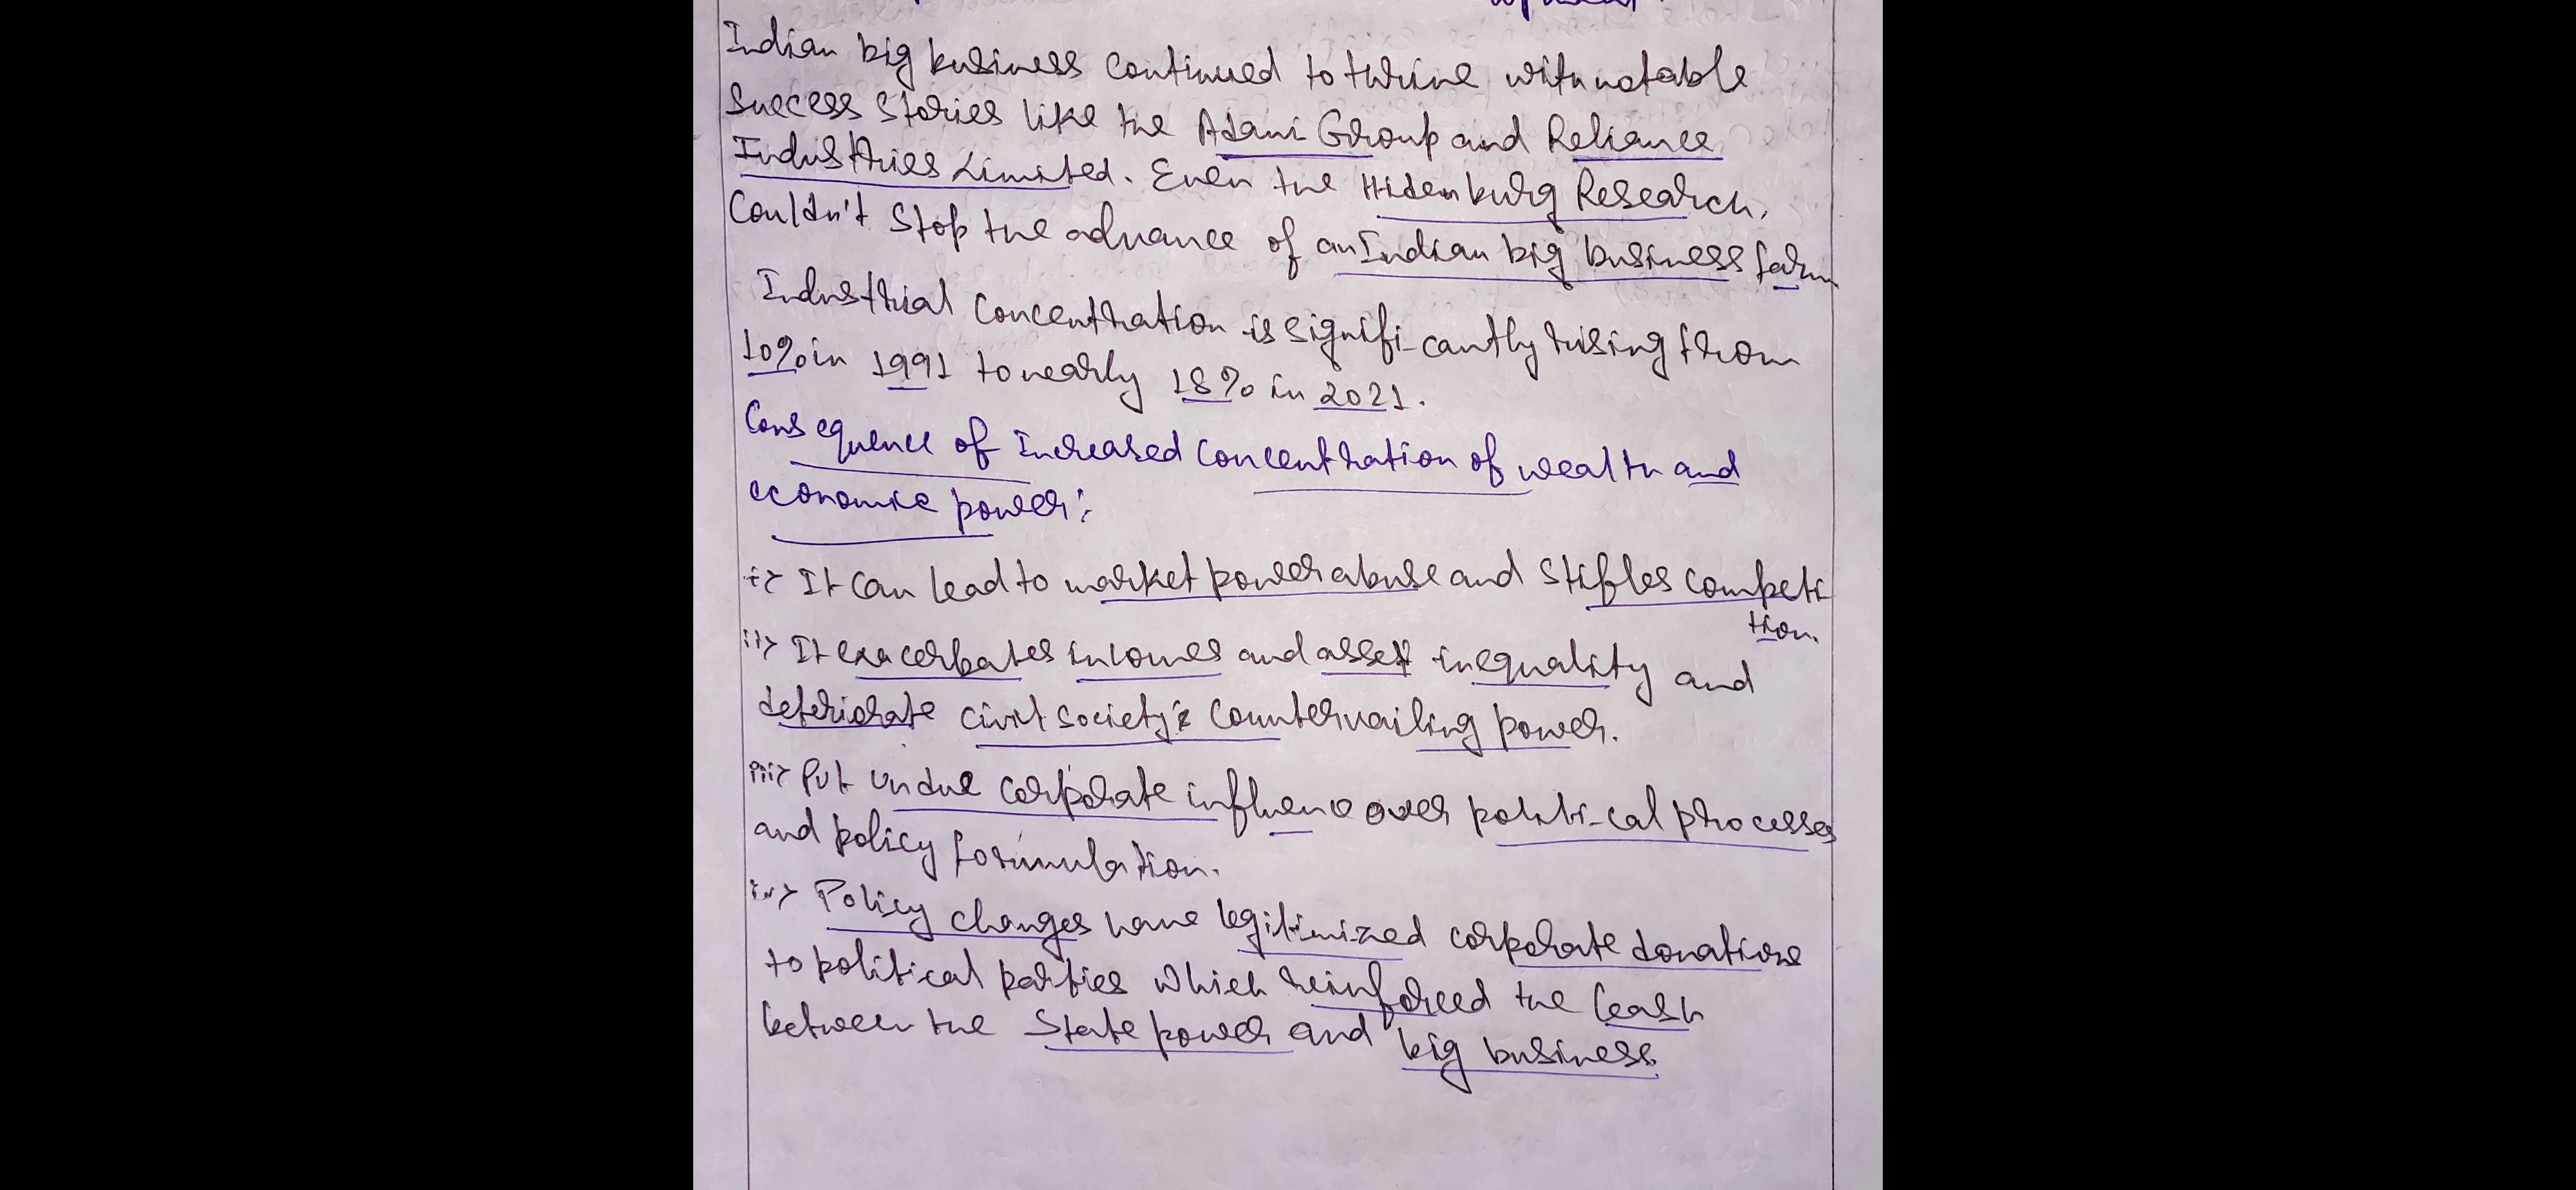 Indian big business continued to thrive with notable
Success stories like the Adani Group and Reliance
Industries Limited. Even the Hidenburg Research,
Couldn't stop the advance of an Indian big business farm
Industrial Concentration is signifi-cantly rising from
10% in 1991 to nearly 18% in 2021.
Consequence of Increased Concentration of wealth and
economic power:
i> It can lead to market power abuse and stifles competi
tion.
ii> It exacerbates incomes and asset inequality and
deteriorate civil society's countervailing power.
iii> Put undue corporate influence over politi-cal processes
and policy formulation.
iv> Policy changes have legitimized corporate donations
to political parties which reinforced the leash
between the State power and big business.